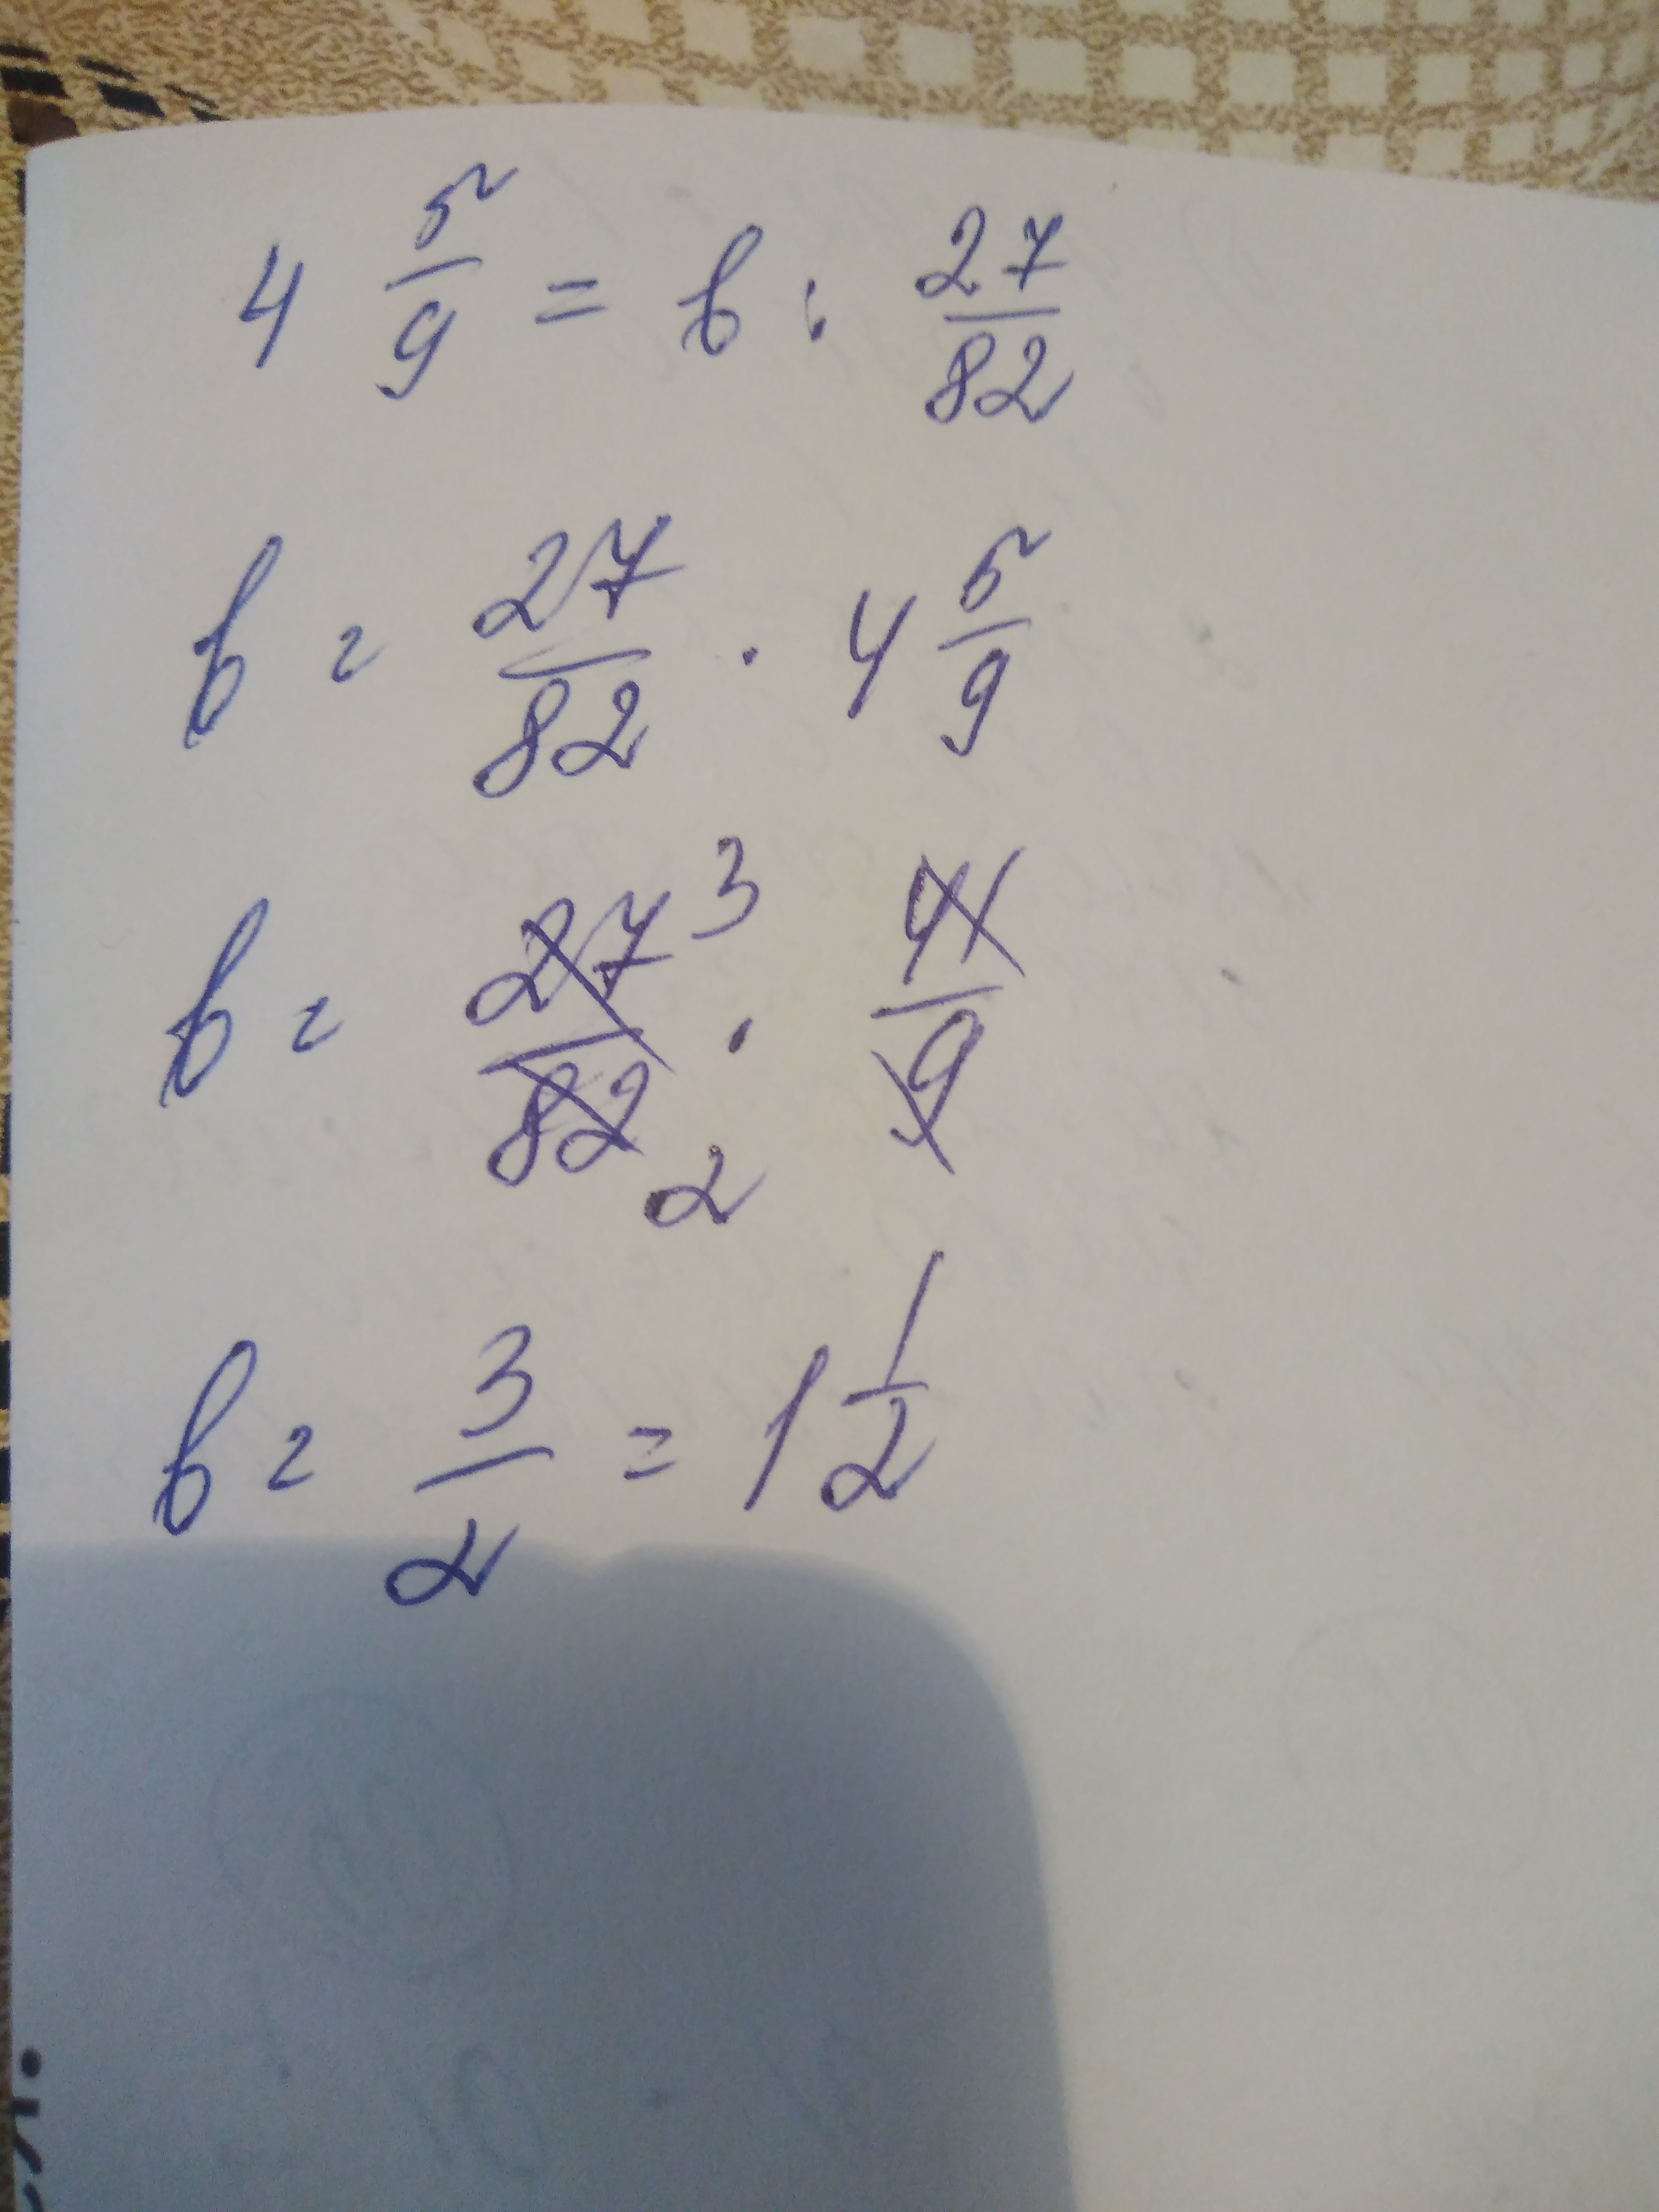 4 5/9 = b : 27/82
b = 27/82 · 4 5/9
b = 27/82 3 2 · 41/9
b = 3/2 = 1 1/2